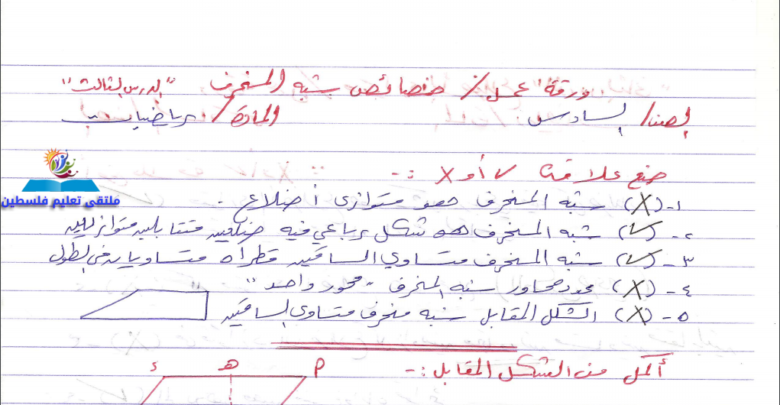 ورقة عمل / خصائص شبه المنحرف "الدرس الثالث"
الصف / السادس
المادة / رياضيات
ضع علامة √ أو X :-
١- (X) شبه المنحرف هو متوازي أضلاع .
٢- (√) شبه المنحرف هو شكل رباعي فيه ضلعين متقابلين متوازيين
٣- (√) شبه المنحرف متساوي الساقين قطراه متساويان في الطول
٤- (X) عدد محاور شبه المنحرف "محور واحد"
٥- (X) الشكل المقابل شبه منحرف متساوي الساقين
أكمل من الشكل المقابل :-
ء هـ م
ملتقى تعليم فلسطين